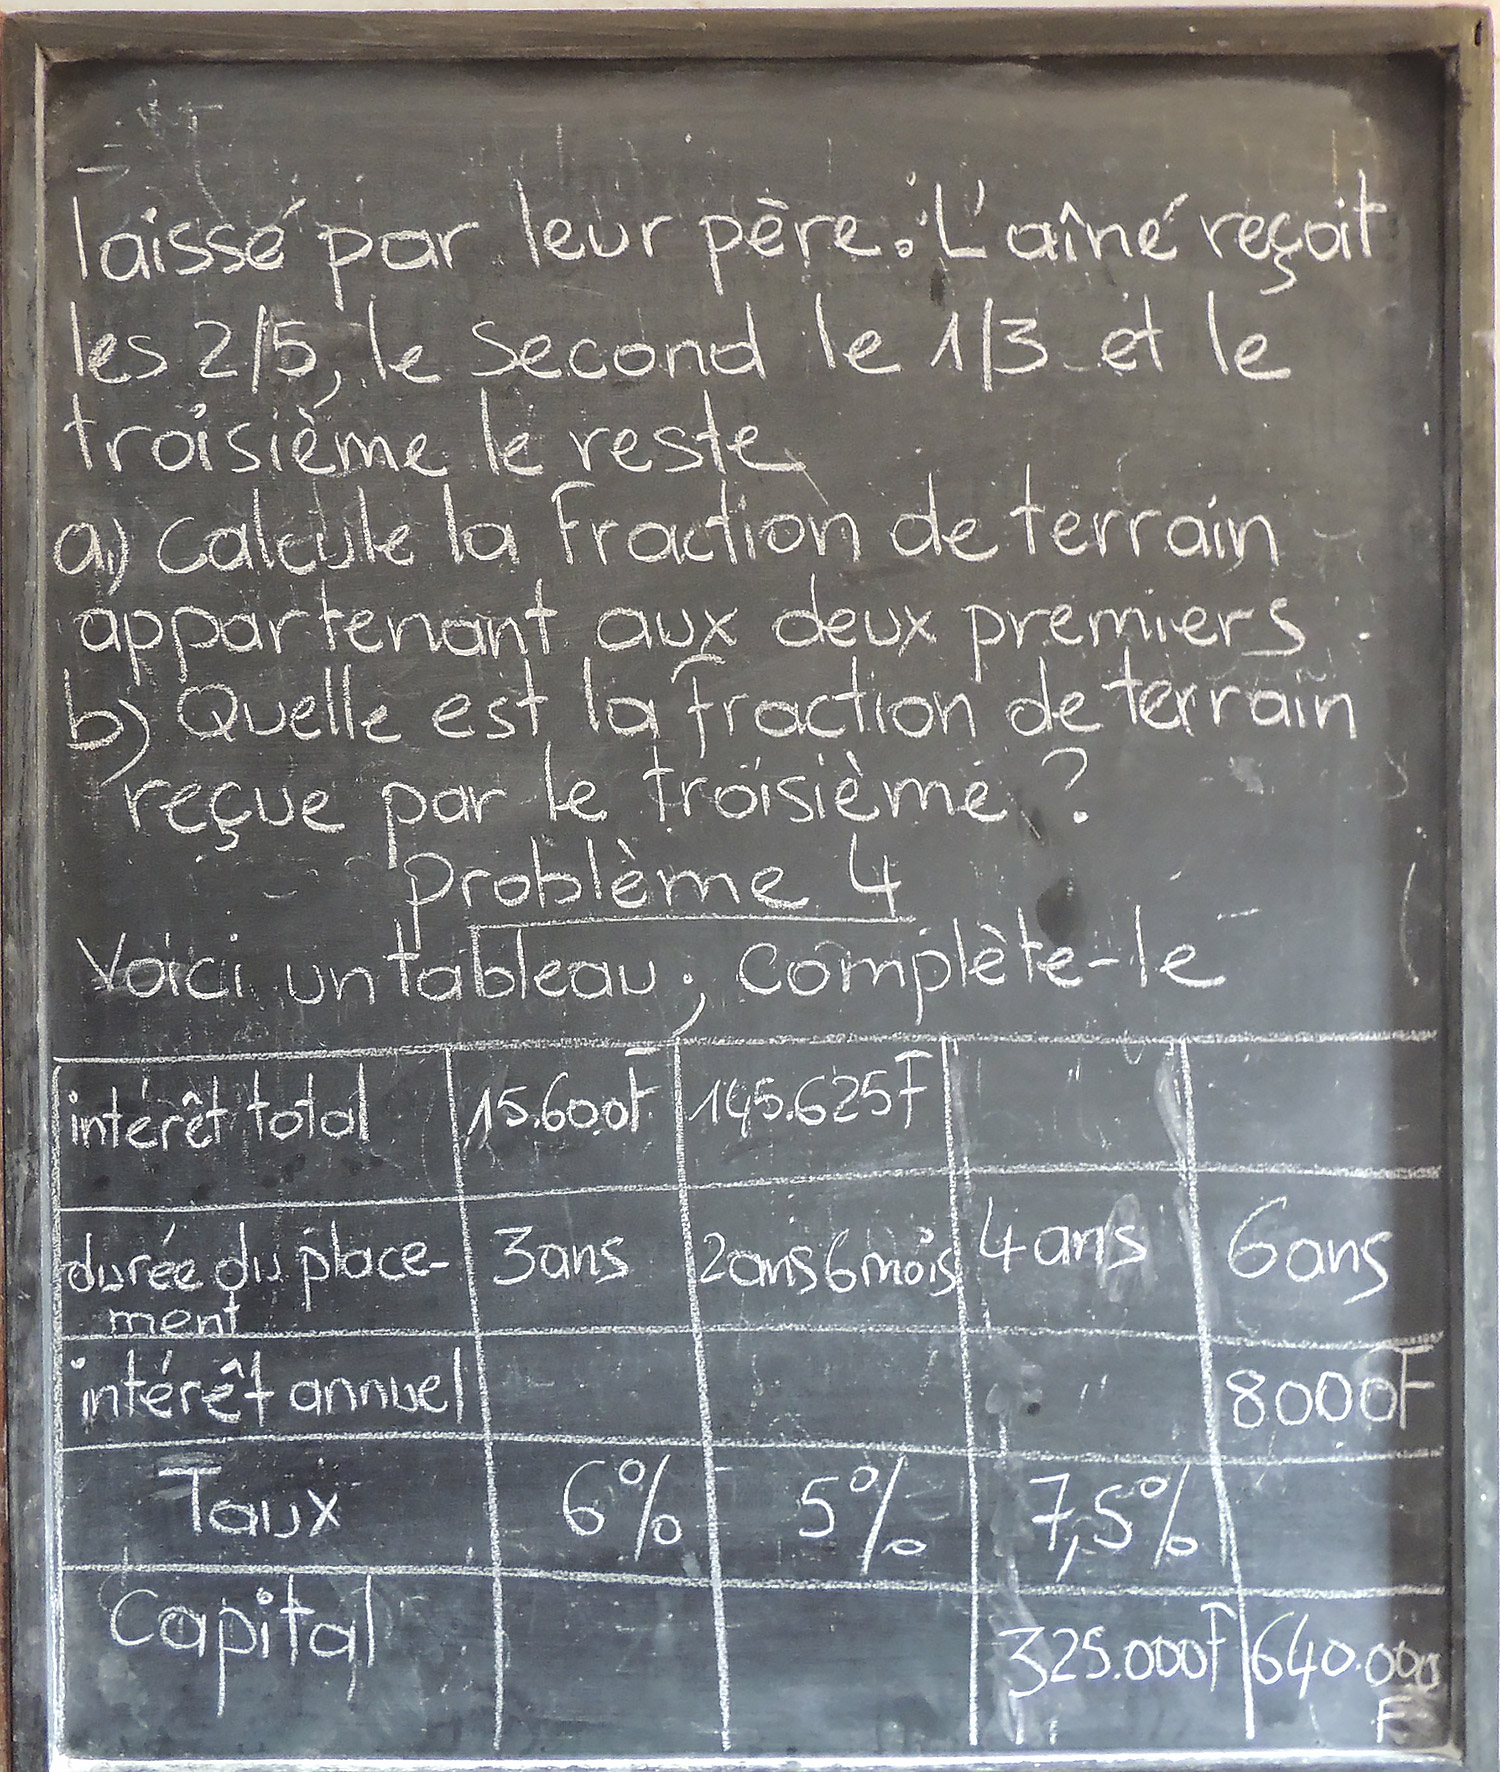 laissé par leur père : L'aîné reçoit
les 2/5, le second le 1/3 et le
troisième le reste
a) calcule la fraction de terrain
appartenant aux deux premiers.
b) Quelle est la fraction de terrain
reçue par le troisième ?
Problème 4
Voici un tableau ; complète-le
intérêt total 15.600F 145.625F "
durée du place- 3ans 2ans6mois 4ans 6ans
ment
intérêt annuel " 8000F
Taux 6% 5% 7,5%
Capital 325.000F 640.000
F